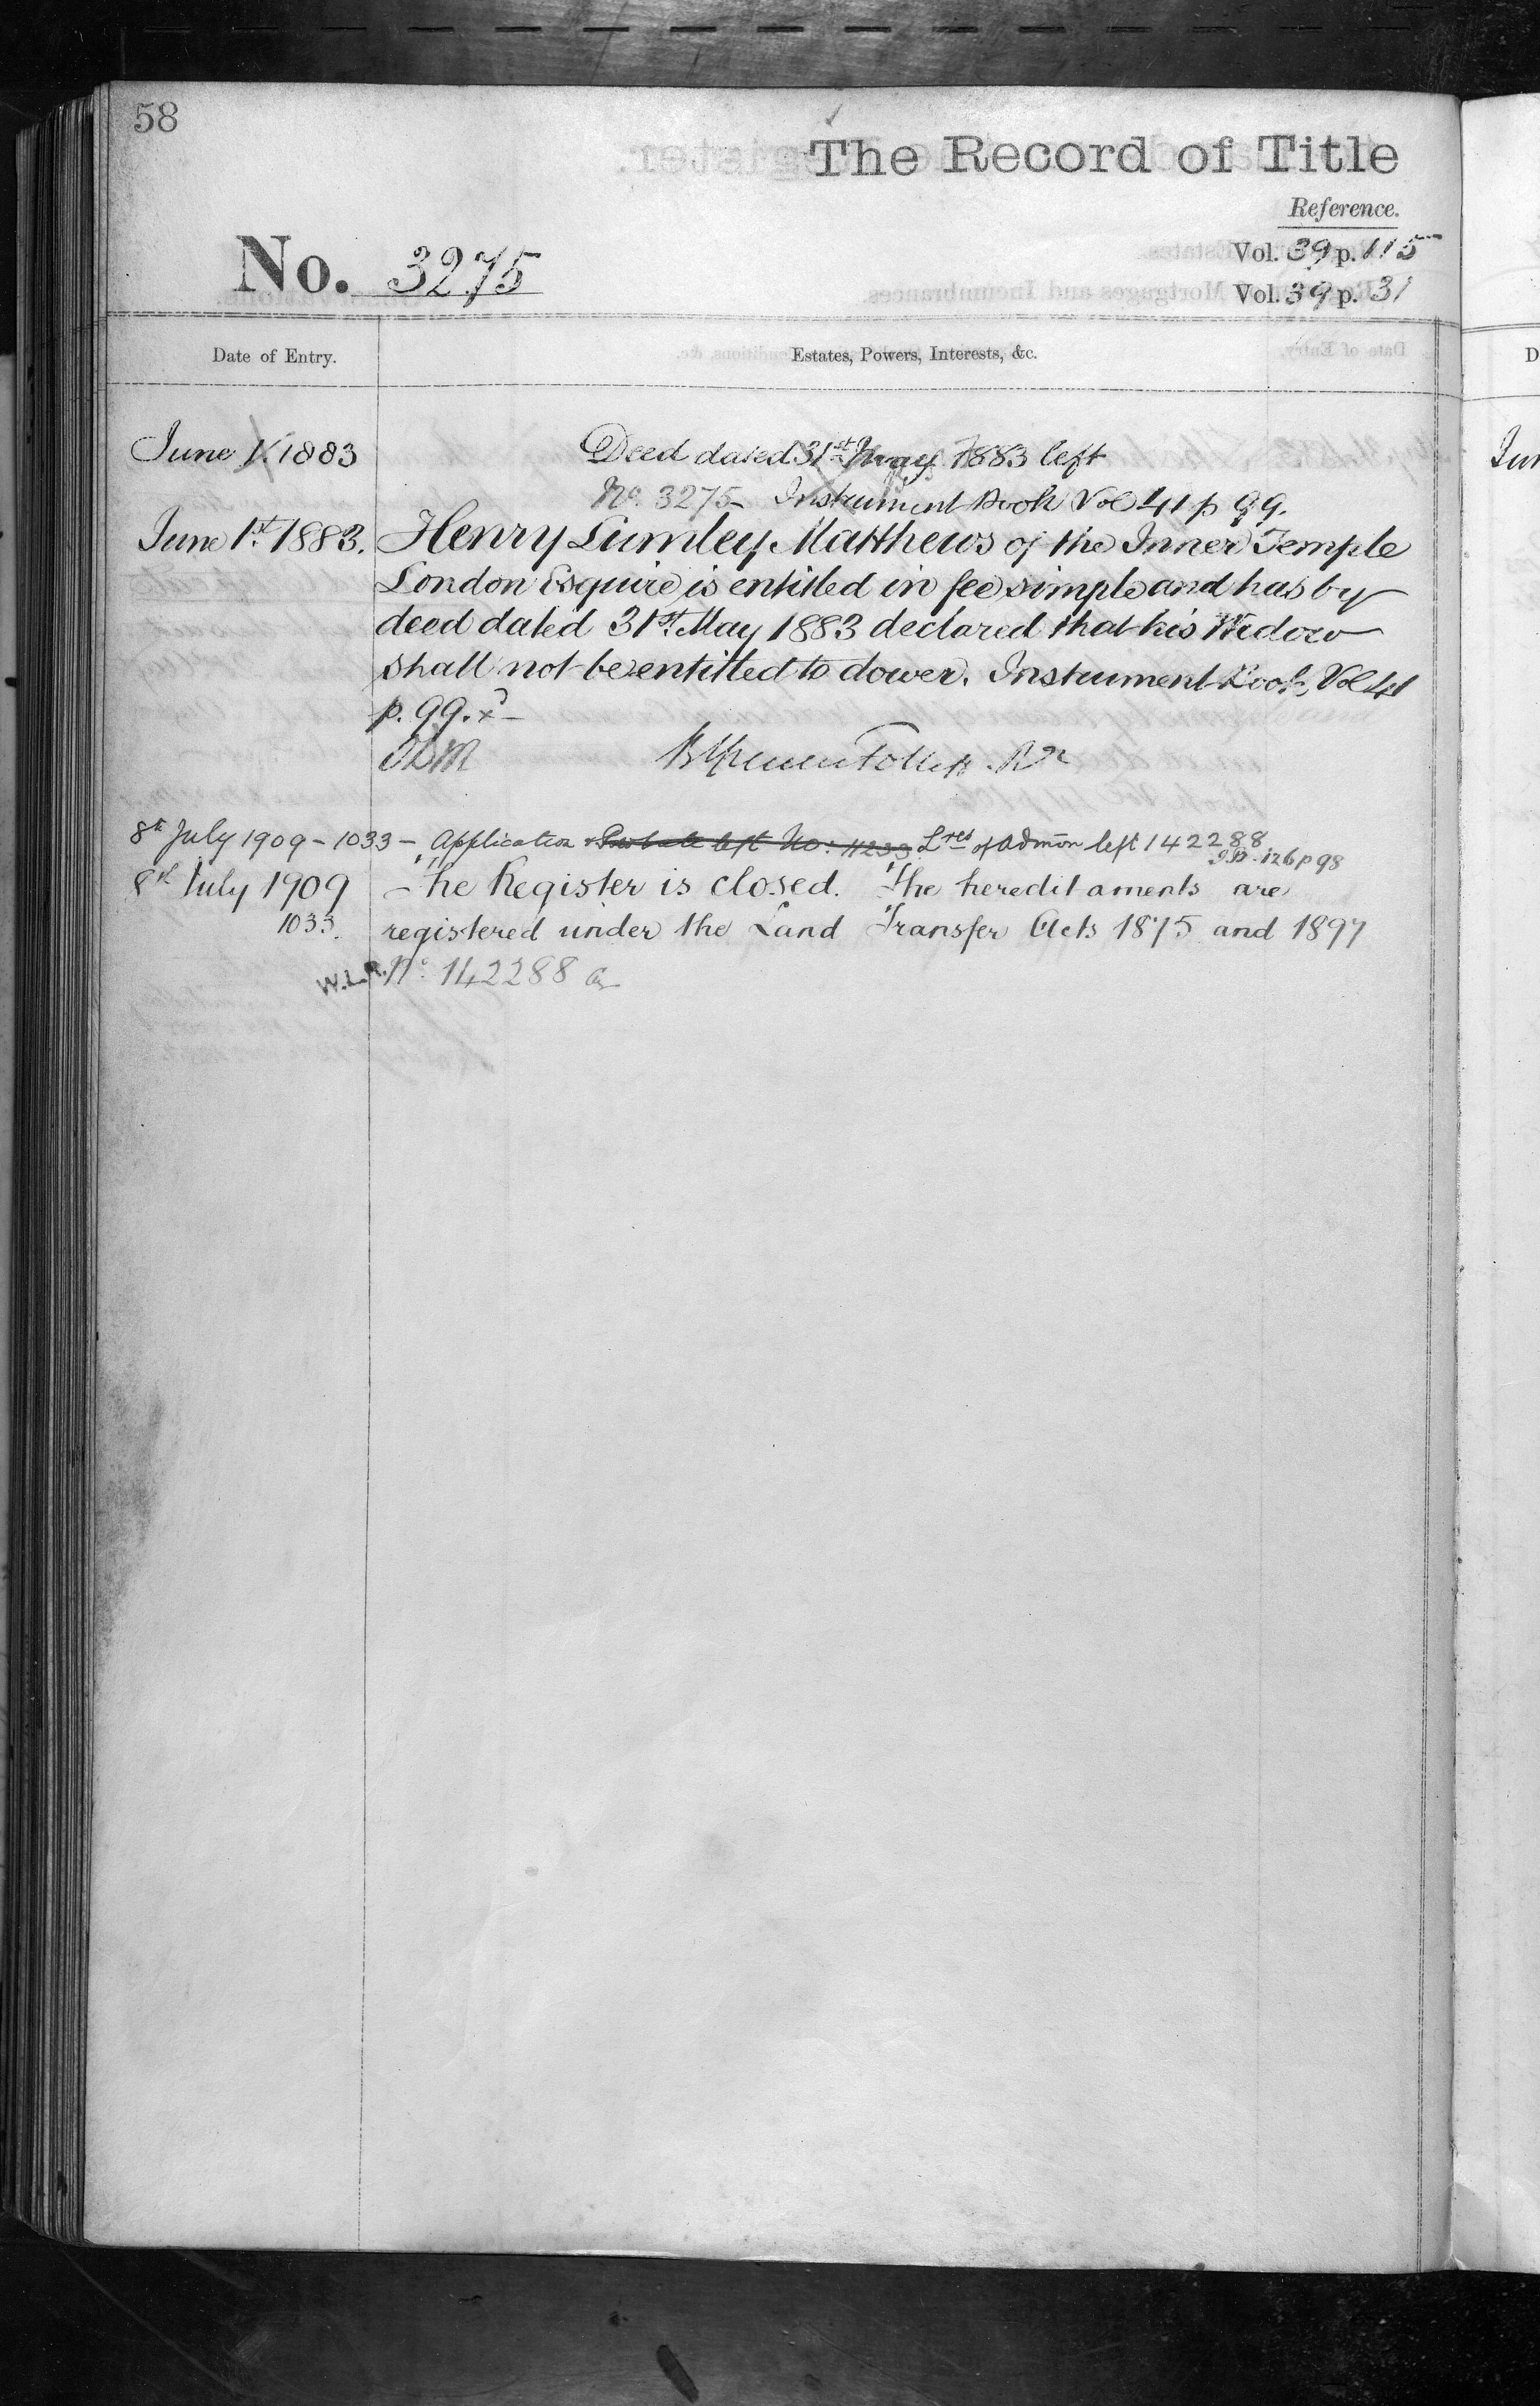 58
The Record of Title
Reference.
Vol. 39 p. 115
No. 3275
Vol. 39 p. 31
Date of Entry.
Estates, Powers, Interests, &c.
June 1. 1883
Deed dated 31st May 1883 left
No. 3275 Instrument Book Vol 41 p 99.
June 1st 1883.
Henry Lumley Matthews of the Inner Temple
London Esquire is entitled in fee simple and has by
deed dated 31st May 1883 declared that his Widow
shall not be entitled to dower. Instrument Book, Vol 41
p. 99.
8th July 1909 - 1033 - Application & Probate left No: 11233 Lres of Admon left 142288
I.B. 126 p 98
8th July 1909
The Register is closed. The hereditaments are
1033.
registered under the Land Transfer Acts 1875 and 1897
W.L.R.
No 142288
D
Jun